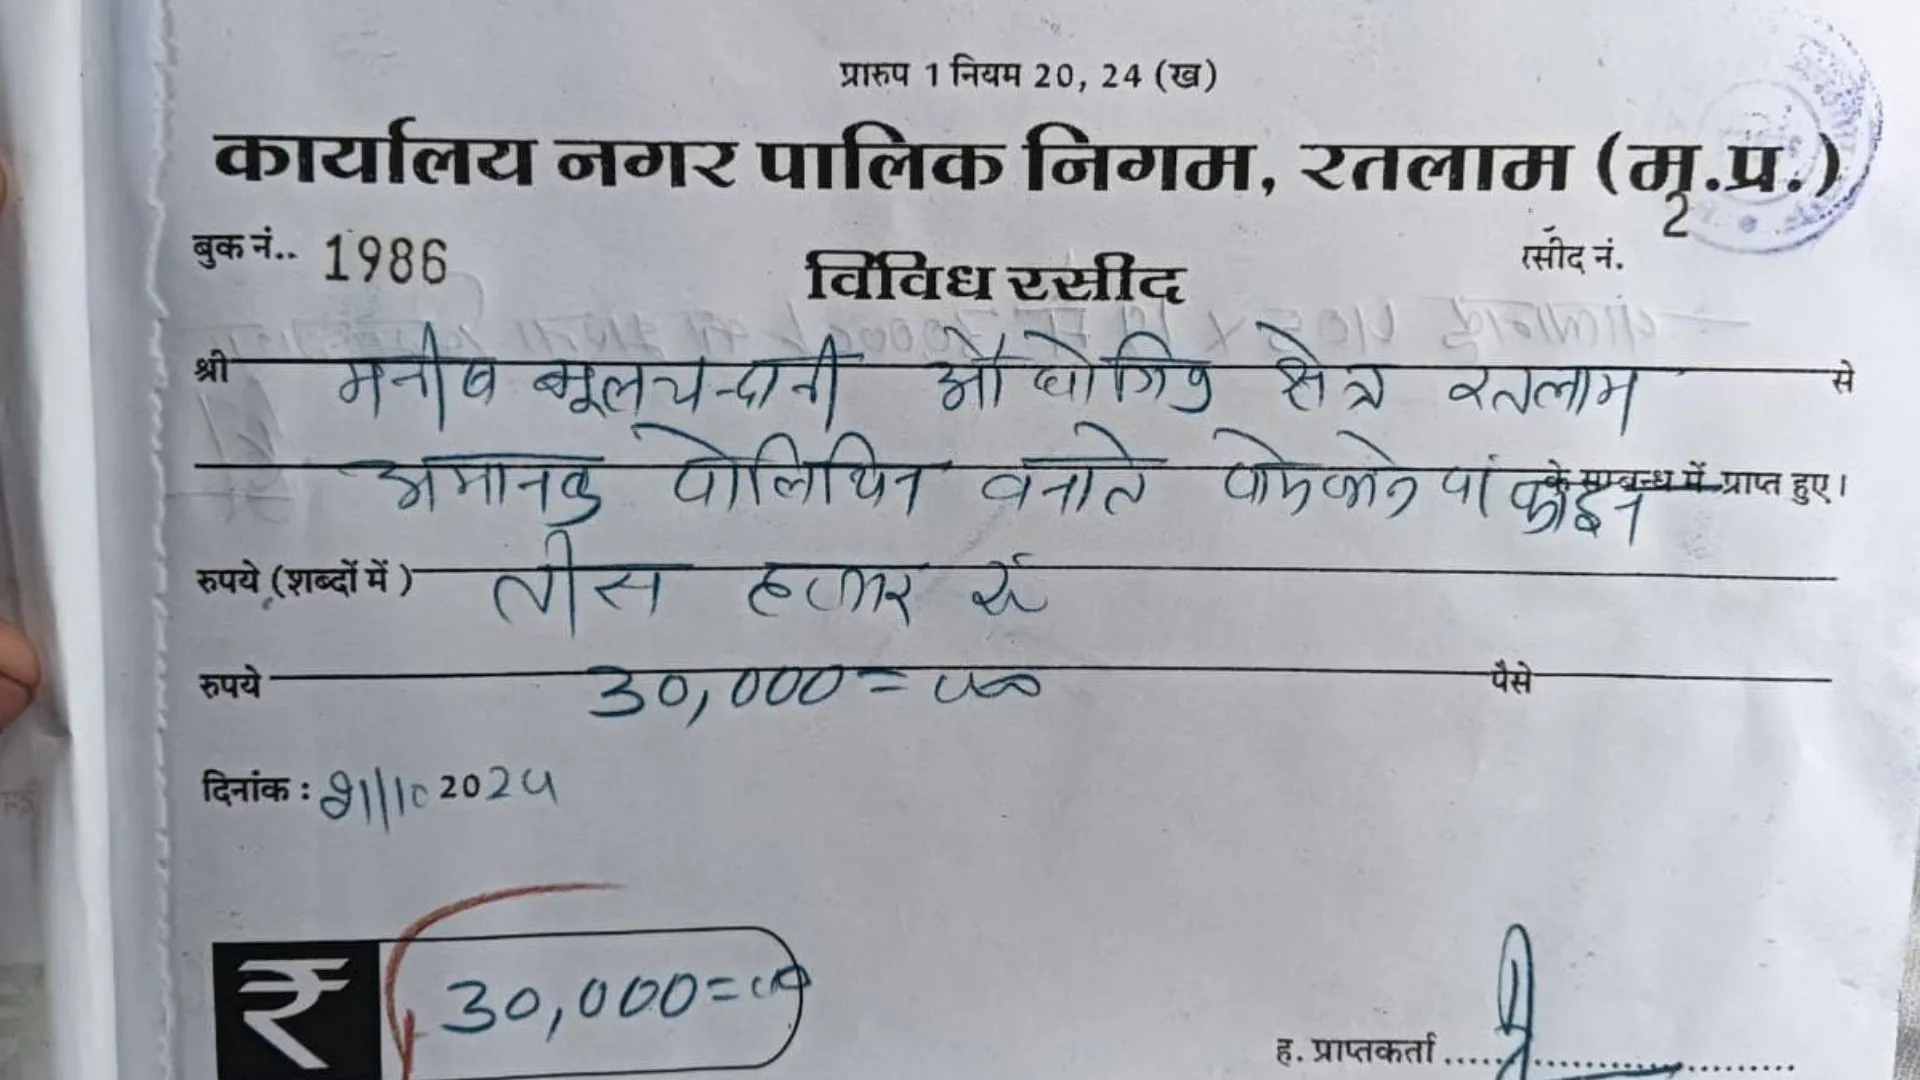 प्रारुप 1 नियम 20, 24 (ख)
कार्यालय नगर पालिक निगम, रतलाम (म.प्र.)
बुक नं.. 1986
विविध रसीद
रसीद नं. 2
श्री मनीष मूलचन्दानी औद्योगिक क्षेत्र रतलाम से
अमानक पोलिथिन बनाते पाये जाने पर फाईन के सम्बन्ध में प्राप्त हुए।
रुपये (शब्दों में) तीस हजार रू
रुपये 30,000=00 पैसे
दिनांक : 2024
₹ 30,000=00
ह. प्राप्तकर्ता